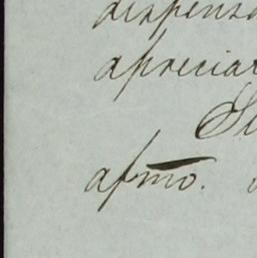 dispensa
apreciar
Su
afmo.